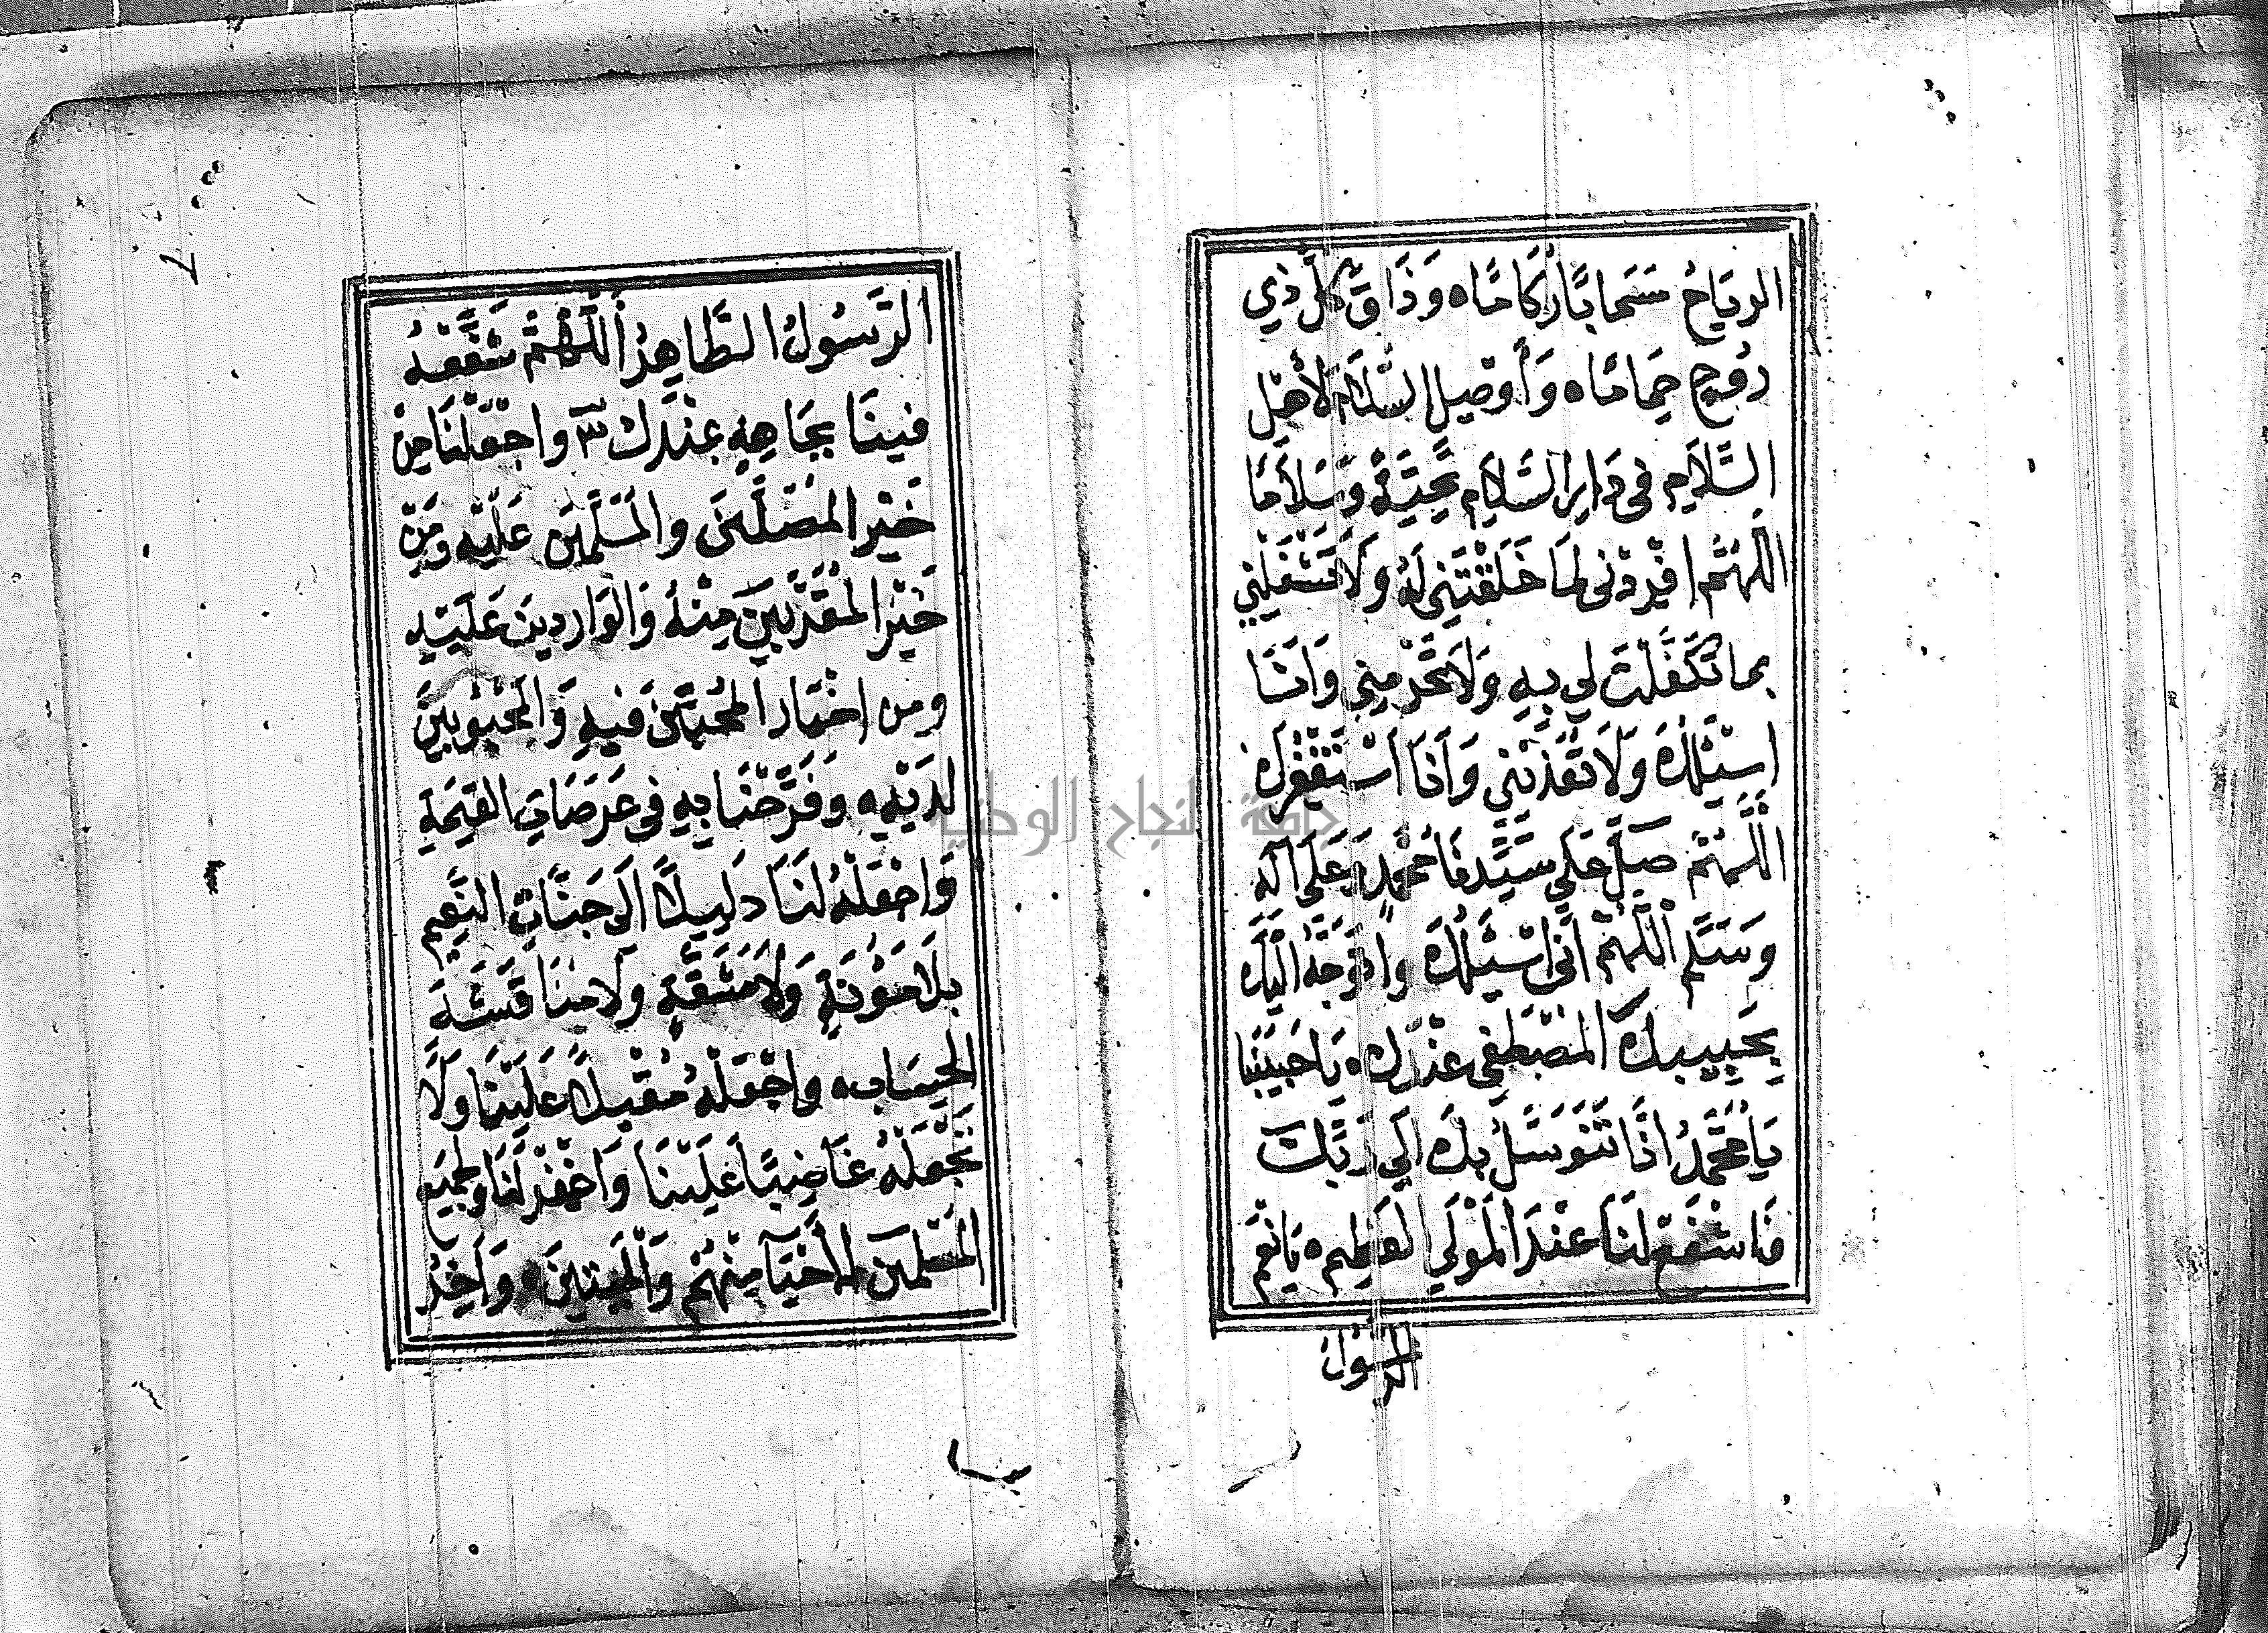 الرِيَاحُ سَحَابًا رُكَامًا ه وَذَاقَ كُلُّ ذِي
رُوحٍ حِمَامًا ه وَأَوْصِلِ السَّلَامَ لِأَهْلِ
السَّلَامِ فِي دَارِ السَّلَامِ تَحِيَّةً وَسَلَامًا
اللهُمَّ افْرِدْنِي لِمَا خَلَقْتَنِي لَهُ وَلَا تَشْغَلْنِي
بِمَا تَكَفَّلْتَ لِي بِهِ وَلَا تَحْرِمْنِي وَانَا
اسْئَلُكَ وَلَا تُعَذِّبْنِي وَأَنَا اَسْتَغْفِرُكَ
اللَّهُمَّ صَلِّ عَلَي سَيِّدِنَا مُحَمَّدٍ وَعَلَى آلِهِ
وَسَلَّم اللَّهُمَّ اَنِّي اَسْئَلُكَ وَاَتَوَجَّهُ اِلَيْكَ
بِحَبِيبِكَ الْمُصْطَفِي عِنْدَكَ ه يَاحَبِيبَنَا
يَامُحَمَّدُ اِنَّا نَتَوَسَّلُ بِكَ اِلَي رَبِّكَ
فَاشْفَعْ لَنَا عِنْدَ الْمَوْلَي الْعَظِيمِ ه يَانِعْمَ
الرسُولُ
٧
الرَّسُولُ الطَّاهِرُ أَللَّهُمَّ شَفِّعْهُ
فِينَا بِجَاهِهِ عِنْدَكَ ٣ وَاجْعَلْنَا مِنْ
خَيْرِ الْمُصَلِّينَ وَالْمُسَلِّمِينَ عَلَيْهِ وَمِنْ
خَيْرِ الْمُقَرَّبِينَ مِنْهُ وَالْوَارِدِينَ عَلَيْهِ
وَمِنْ اخْيَارِ الْمُحِبِّينَ فِيهِ وَالْمَحْبُوبِينَ
لَدَيْهِ ه وَفَرِّحْنَا بِهِ فِي عَرَصَاتِ الْقِيٰمَةِ
وَاجْعَلْهُ لَنَا دَلِيلًا اِلَى جَنَّاتِ النَّعِيمِ
بِلَا مَؤُنَةٍ وَلَا مَشَقَّةٍ وَلَا مُنَاقَشَةَ
الْحِسَابِ ه وَاجْعَلْهُ مُقْبِلًا عَلَيْنَا وَلَا
تَجْعَلْهُ غَاضِبًا عَلَيْنَا وَاغْفِرْ لَنَا وَلِجَمِيعِ
الْمُسْلِمِينَ الْأَحْيَآ مِنْهُمْ وَالْمَيِّتِينَ ه وَآخِرُ
جامعة النجاح الوطنية